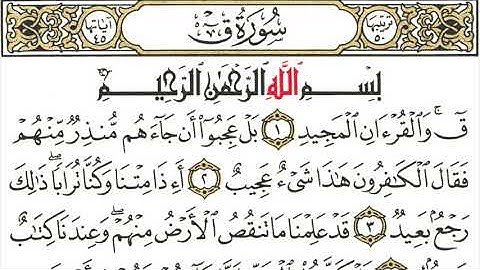 ترتيبها ٥٠ سُورَةُ ق آياتها ٤٥
بِسْمِ ٱللَّهِ ٱلرَّحْمَٰنِ ٱلرَّحِيمِ
قٓ ۚ وَٱلْقُرْءَانِ ٱلْمَجِيدِ ١ بَلْ عَجِبُوٓا۟ أَن جَآءَهُم مُّنذِرٌ مِّنْهُمْ
فَقَالَ ٱلْكَٰفِرُونَ هَٰذَا شَىْءٌ عَجِيبٌ ٢ أَءِذَا مِتْنَا وَكُنَّا تُرَابًا ۖ ذَٰلِكَ
رَجْعٌۢ بَعِيدٌ ٣ قَدْ عَلِمْنَا مَا تَنقُصُ ٱلْأَرْضُ مِنْهُمْ ۖ وَعِندَنَا كِتَٰبٌ